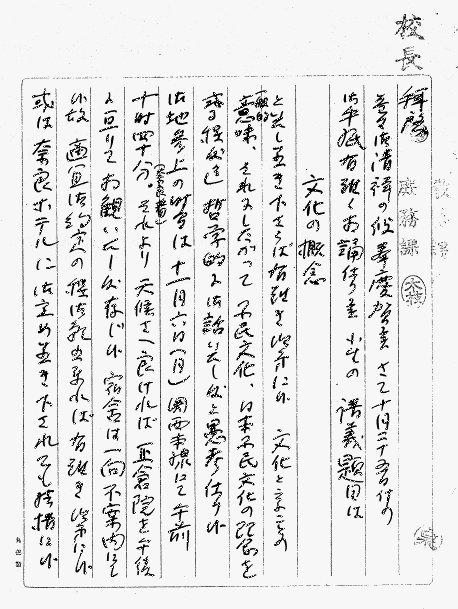 校長
拝啓
益々御清祥の段奉慶賀候 さて十月二十五日付の
御手紙有難くお誦仕候 小生の 講義題目は
文化の概念
と致し置き下さらば有難き次第に候 文化と云ふことの
一般的
意味、それにしたがって 国民文化、日本国民文化の概念を
哲学的に御話いたし度と愚考仕り候
御地参上の時間は十一月六日(月)関西本線にて午前
十時四十分。それより 天候さへ良ければ 正倉院を午後
に亘りてお観いたし度存じ候 宿舎は一向不案内にて
候故 適宜御約定の程御願出来れば有難き次第に候
或は奈良ホテルに御定め置き下されても結構に候
庶務課